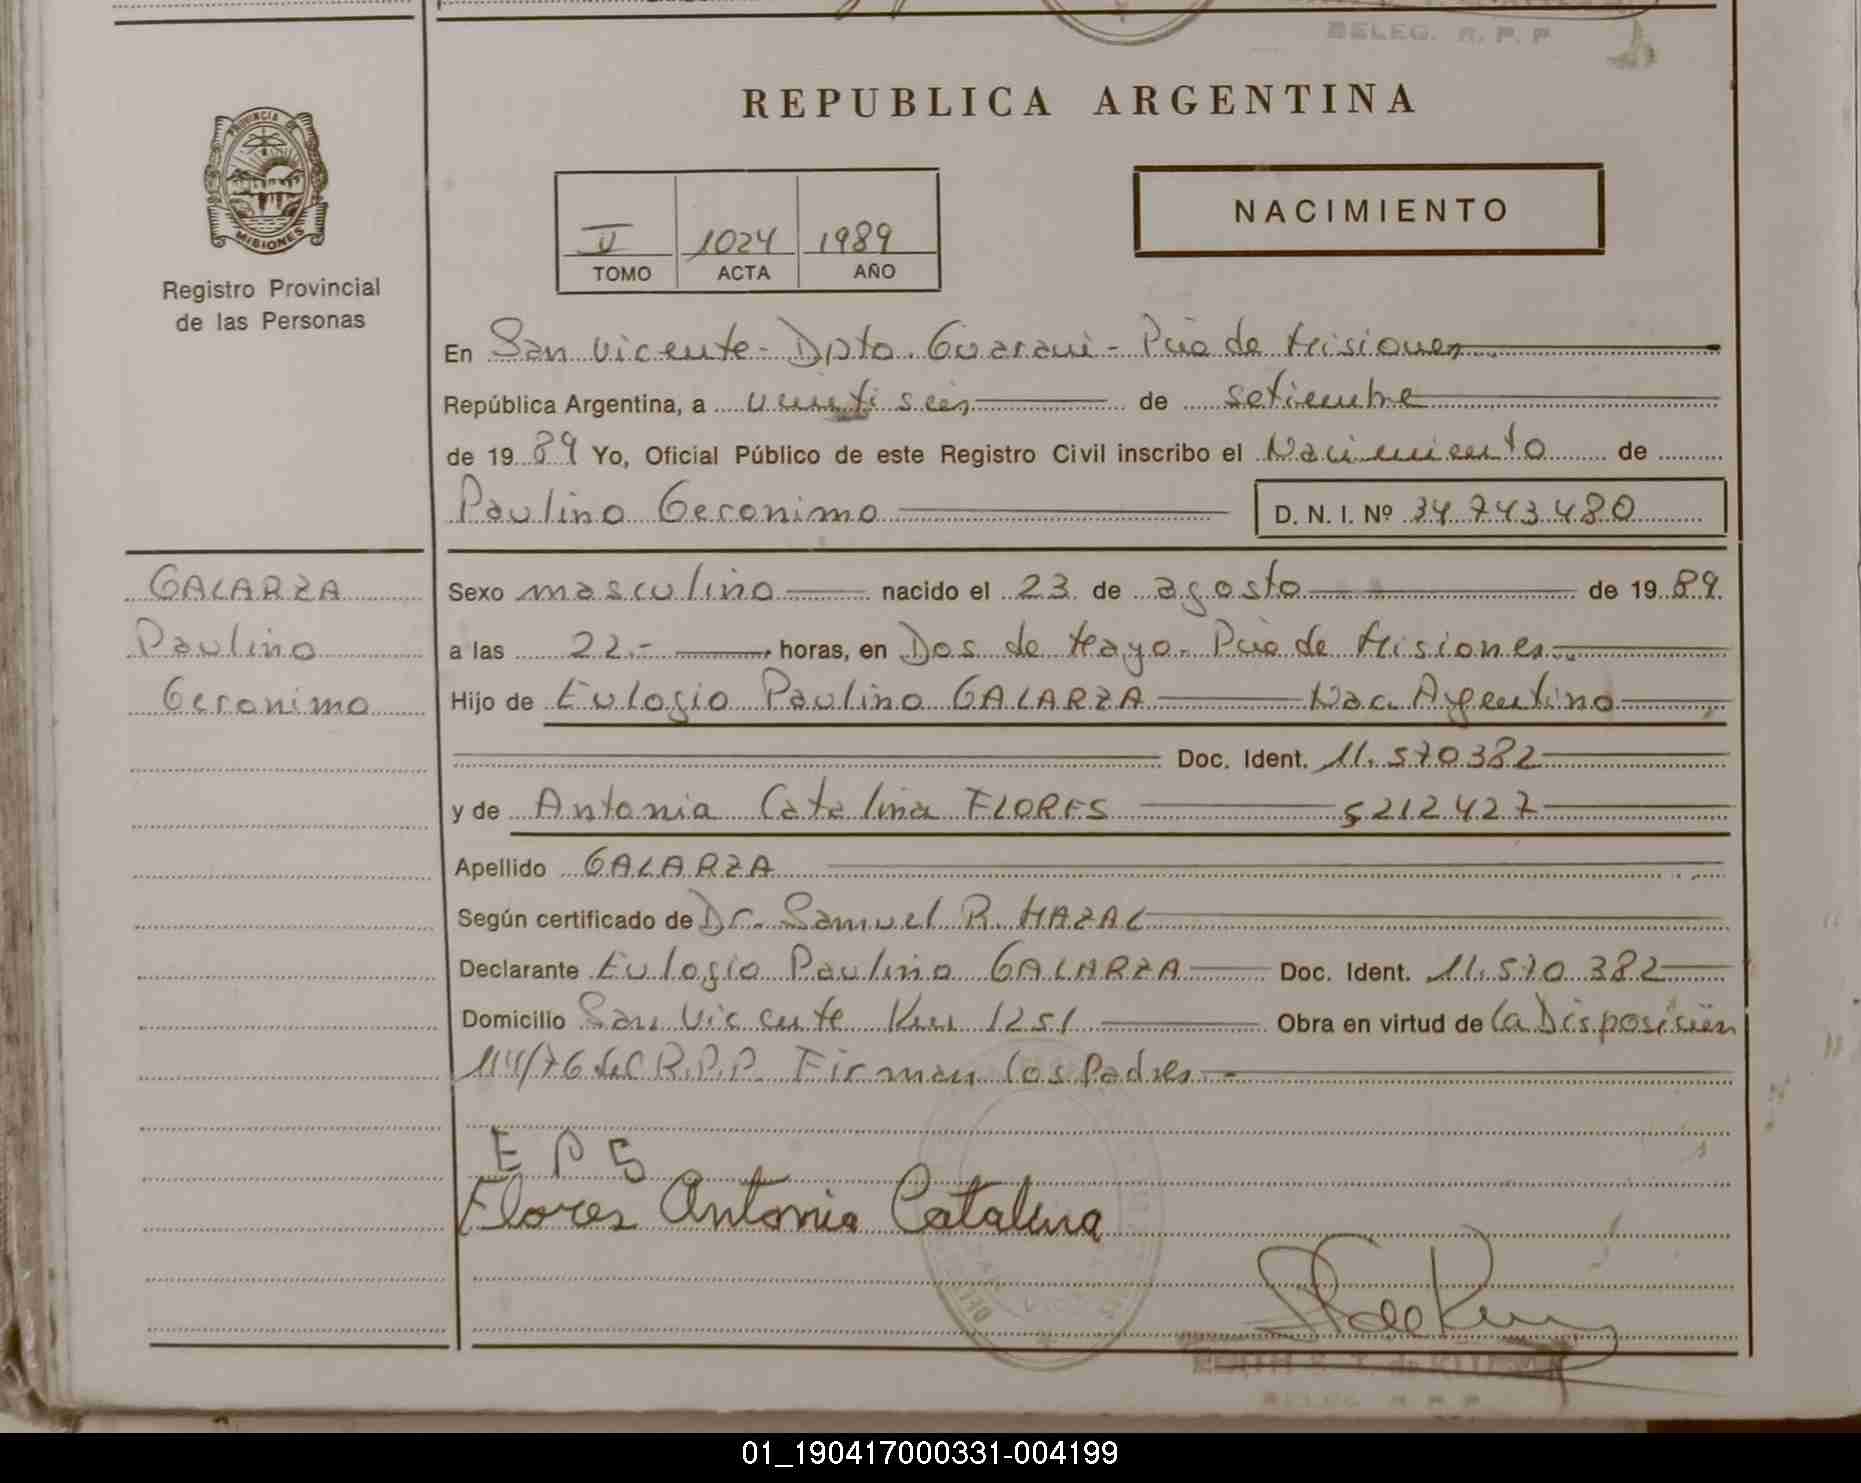 BELEG. R. P. P
REPUBLICA ARGENTINA
PROVINCIA DE
MISIONES
Registro Provincial
de las Personas
II 1024 1989
TOMO ACTA AÑO
NACIMIENTO
En San Vicente - Dpto. Guarani - Pcia de Misiones
República Argentina, a veintiseis de setiembre
de 1989 Yo, Oficial Público de este Registro Civil inscribo el Nacimiento de
Paulino Geronimo D. N. I. Nº 34.743.480
GALARZA
Paulino
Geronimo
Sexo masculino nacido el 23 de agosto de 1989.
a las 22.- horas, en Dos de Mayo. Pcia de Misiones.
Hijo de Eulogio Paulino GALARZA Nac. Argentino
Doc. Ident. 11.570382
y de Antonia Catalina FLORES 5212427
Apellido GALARZA
Según certificado de Dr. Samuel R. MAZAL
Declarante Eulogio Paulino GALARZA Doc. Ident. 11.570.382
Domicilio San Vicente Km 1251 Obra en virtud de la Disposición
114/76 del R.P.P. Firman los Padres -
E P G
Flores Antonia Catalina
BELEG. R. P. P.
01_190417000331-004199